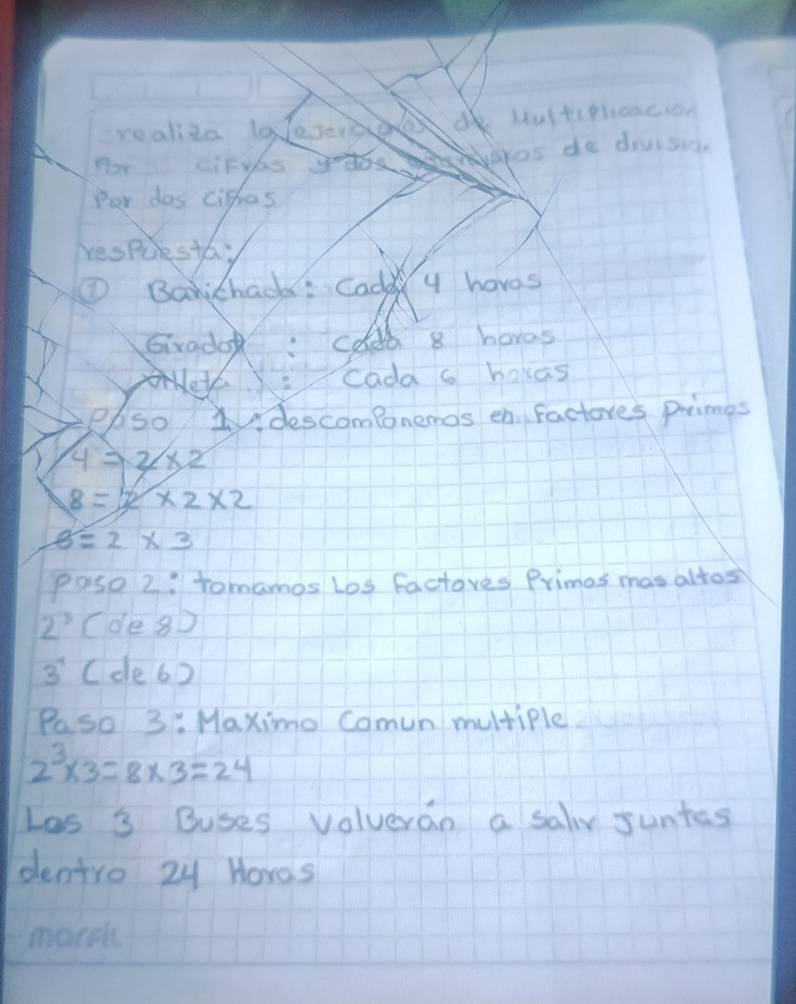 realiza la de Multiplicacion
Por cifras y dos de
Por dos cifras
resPuesta:
① Barichada: Cada 4 horas
Girador : cada 8 horas
: Cada 6 horas
Paso 1: descomPonemos en Factores Primos
4 = 2 x 2
8 = 2 x 2 x 2
6 = 2 x 3
Paso 2: tomamos Los Factores Primos mas altos
2³ (de 8)
3¹ (de 6)
Paso 3: Maximo Comun multiPle
2³x3=8x3=24
Los 3 Buses volverán a salir Juntas
dentro 24 Horas